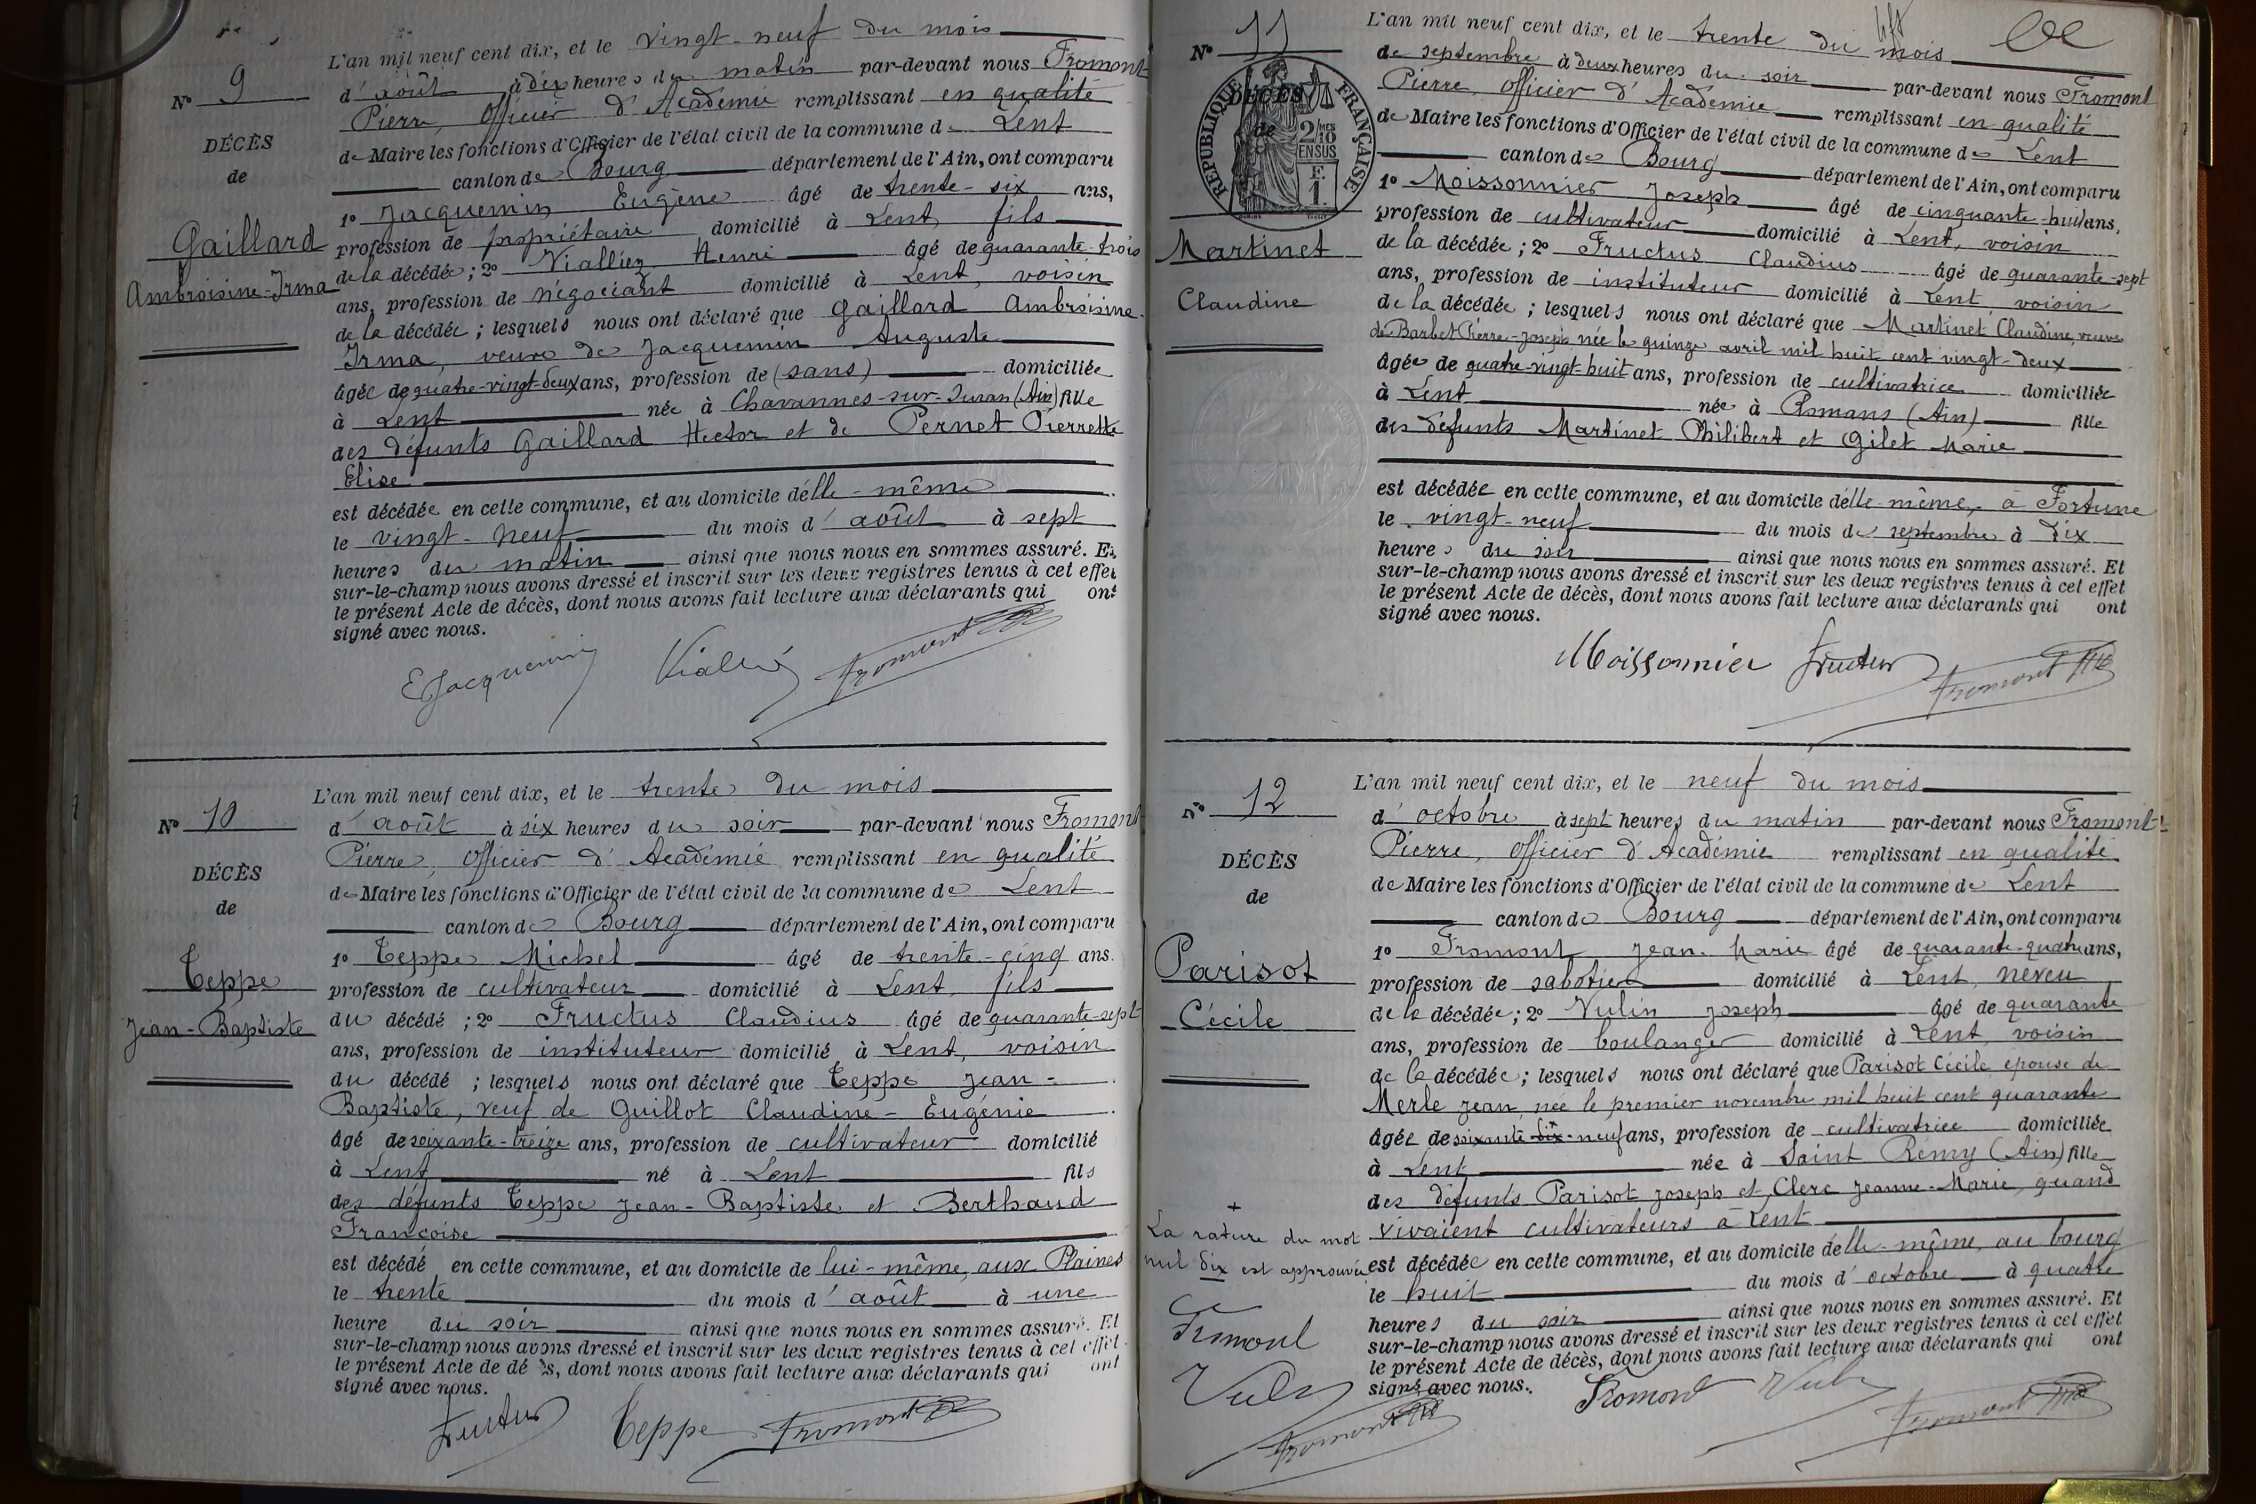 N° 9
DÉCÈS
de
Gaillard
Ambroisine-Irma
L'an mil neuf cent dix, et le vingt-neuf du mois
d'août à dix heures du matin par-devant nous Fromont
Pierre, Officier d'Académie remplissant en qualité
de Maire les fonctions d'Officier de l'état civil de la commune de Lent
canton de Bourg département de l'Ain, ont comparu
1° Jacquemin Eugène âgé de trente-six ans,
profession de propriétaire domicilié à Lent, fils
de la décédée; 2° Viallier Henri âgé de quarante-trois
ans, profession de négociant domicilié à Lent, voisin
de la décédée; lesquels nous ont déclaré que Gaillard Ambroisine-
Irma, veuve de Jacquemin Auguste
âgée de quatre-vingt-deux ans, profession de (sans) domiciliée
à Lent née à Chavannes-sur-Suran (Ain) fille
des défunts Gaillard Hector et de Pernet Pierrette
Elise
est décédée en cette commune, et au domicile d'elle-même
le vingt-neuf du mois d'août à sept
heures du matin ainsi que nous nous en sommes assuré. Et
sur-le-champ nous avons dressé et inscrit sur les deux registres tenus à cet effet
le présent Acte de décès, dont nous avons fait lecture aux déclarants qui ont
signé avec nous.
EJacquemin Viallier Fromont Pre
N° 10
DÉCÈS
de
Teppe
Jean-Baptiste
L'an mil neuf cent dix, et le trente du mois
d'août à six heures du soir par-devant nous Fromont
Pierre, Officier d'Académie remplissant en qualité
de Maire les fonctions d'Officier de l'état civil de la commune de Lent
canton de Bourg département de l'Ain, ont comparu
1° Teppe Michel âgé de trente-cinq ans.
profession de cultivateur domicilié à Lent, fils
du décédé; 2° Fructus Claudius âgé de quarante-sept
ans, profession de instituteur domicilié à Lent, voisin
du décédé; lesquels nous ont déclaré que Teppe Jean-
Baptiste, veuf de Guillot Claudine-Eugénie
âgé de soixante-treize ans, profession de cultivateur domicilié
à Lent né à Lent fils
des défunts Teppe Jean-Baptiste et Berthaud
Françoise
est décédé en cette commune, et au domicile de lui-même, aux Plaines
le trente du mois d'août à une
heure du soir ainsi que nous nous en sommes assuré. Et
sur-le-champ nous avons dressé et inscrit sur les deux registres tenus à cet effet
le présent Acte de décès, dont nous avons fait lecture aux déclarants qui ont
signé avec nous.
Fructus Teppe Fromont Pre
N° 11
DÉCÈS
de
RÉPUBLIQUE FRANÇAISE
2/10 EN SUS
F.
1.
Martinet
Claudine
L'an mil neuf cent dix, et le trente du mois
de septembre à deux heures du soir par-devant nous Fromont
Pierre, Officier d'Académie remplissant en qualité
de Maire les fonctions d'Officier de l'état civil de la commune de Lent
canton de Bourg département de l'Ain, ont comparu
1° Moissonnier Joseph âgé de cinquante-huit ans,
profession de cultivateur domicilié à Lent, voisin
de la décédée; 2° Fructus Claudius âgé de quarante-sept
ans, profession de instituteur domicilié à Lent, voisin
de la décédée; lesquels nous ont déclaré que Martinet Claudine, veuve
de Barbet Pierre-Joseph née le quinze avril mil huit cent vingt-deux
âgée de quatre-vingt-huit ans, profession de cultivatrice domiciliée
à Lent née à Romans (Ain) fille
des défunts Martinet Philibert et Gilet Marie
est décédée en cette commune, et au domicile d'elle-même, à Fortune
le vingt-neuf du mois de septembre à dix
heures du soir ainsi que nous nous en sommes assuré. Et
sur-le-champ nous avons dressé et inscrit sur les deux registres tenus à cet effet
le présent Acte de décès, dont nous avons fait lecture aux déclarants qui ont
signé avec nous.
Moissonnier Fructus Fromont Pre
N° 12
DÉCÈS
de
Parisot
Cécile
L'an mil neuf cent dix, et le neuf du mois
d'octobre à sept heures du matin par-devant nous Fromont
Pierre, Officier d'Académie remplissant en qualité
de Maire les fonctions d'Officier de l'état civil de la commune de Lent
canton de Bourg département de l'Ain, ont comparu
1° Fromont Jean-Marie âgé de quarante-quatre ans,
profession de sabotier domicilié à Lent, neveu
de la décédée; 2° Vulin Joseph âgé de quarante
ans, profession de boulanger domicilié à Lent, voisin
de la décédée; lesquels nous ont déclaré que Parisot Cécile épouse de
Merle Jean, née le premier novembre mil huit cent quarante
âgée de soixante-dix-neuf ans, profession de cultivatrice domiciliée
à Lent née à Saint Rémy (Ain) fille
des défunts Parisot Joseph et Clerc Jeanne-Marie, quand
vivaient cultivateurs à Lent
est décédée en cette commune, et au domicile d'elle-même, au bourg
le huit du mois d'octobre à quatre
heures du soir ainsi que nous nous en sommes assuré. Et
sur-le-champ nous avons dressé et inscrit sur les deux registres tenus à cet effet
le présent Acte de décès, dont nous avons fait lecture aux déclarants qui ont
signé avec nous.
Fromont Vulin Fromont Pre
+
La rature du mot
nul dix est approuvée
Fromont
Vulin
Fromont Pre